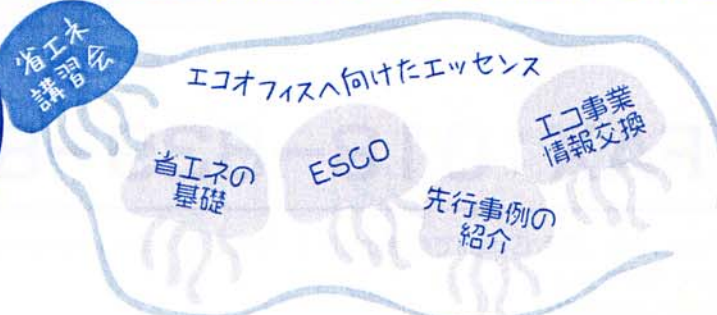 省エネ
講習会
エコオフィスへ向けたエッセンス
省エネの
基礎
ESCO
先行事例の
紹介
エコ事業
情報交換